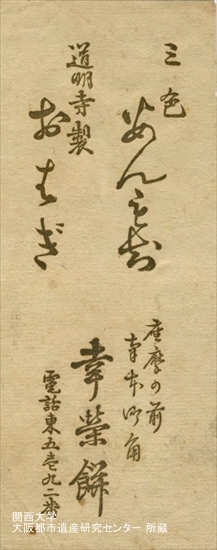 三色
あんころ
道明寺製
おはぎ
座摩の前
幸榮餅
電話東五壱九二番
関西大学
大阪都市遺産研究センター 所蔵